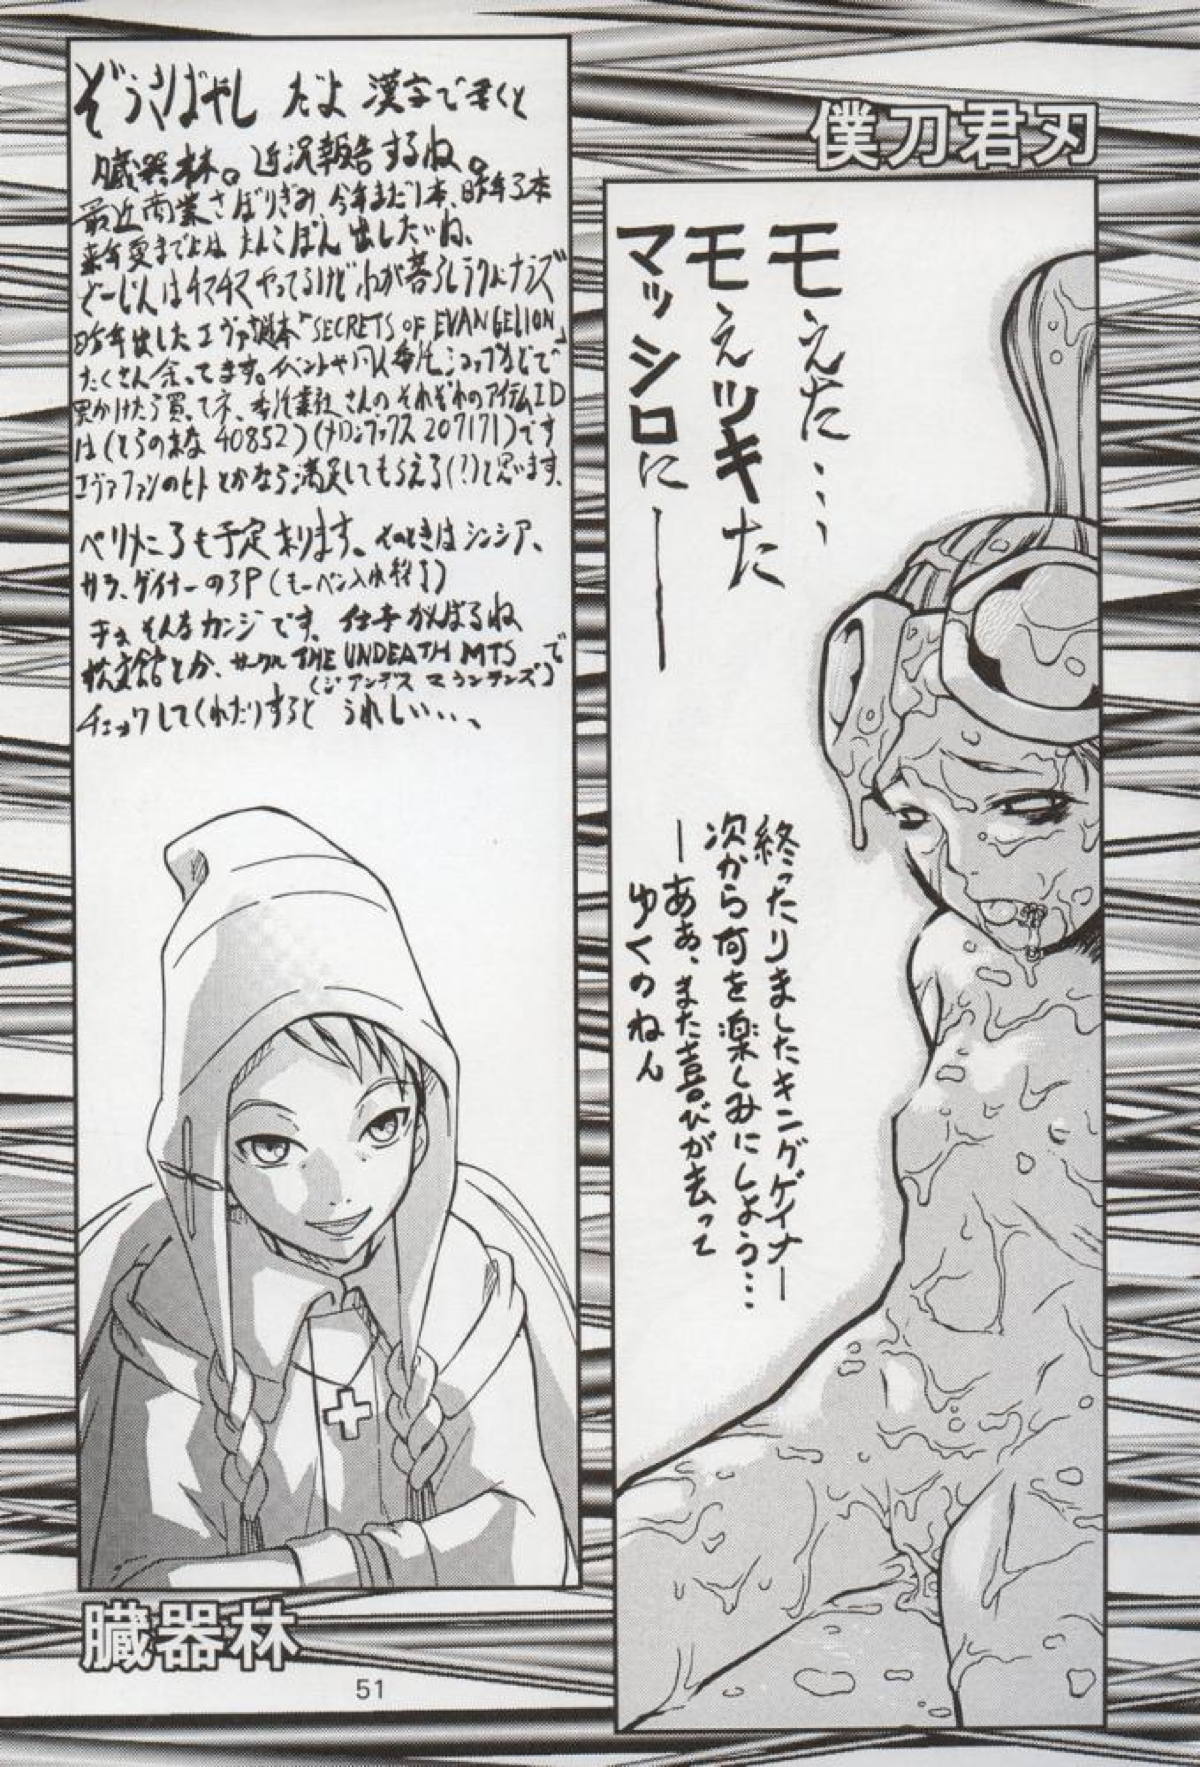 僕刀君刃
モえた…
モえッキた
マッシロにー
終ったりましたキングゲイナー
次から何を楽しみにしよう…
ーあぁ、また喜びが去って
ゆくのねん
ぞうきばやし だよ 漢字で書くと
臓器林。近況報告するね。
最近商業さぼりぎみ、今年まだ1本、昨年3本
来年夏までには たんこぼん 出したいね、
どーじんはチマチマやってるけどわが暮らしラクにナラズ
昨年出したエヴァ本「SECRETS OF EVANGELION」
たくさん余ってます。イベントや同人委託ショップなどで
見かけたら買ってネ、委託業社さんのそれぞれのアイテムID
は(とらのあな 40852)(メロンブックス 207171)です
エヴァファンのヒトとかなら満足してもらえる(?)と思います、
ペリメニ3も予定あります、そのときはシンシア、
サラ、ゲイナーの3P(もーぺん入れ終了)
まぁ そんなカンジです、仕事がんばるね
松文館とか、サークル THE UNDEATH MTS で
(ジアンデス マウンテンズ)
チェックしてくれたりすると うれしい…、
臓器林
51